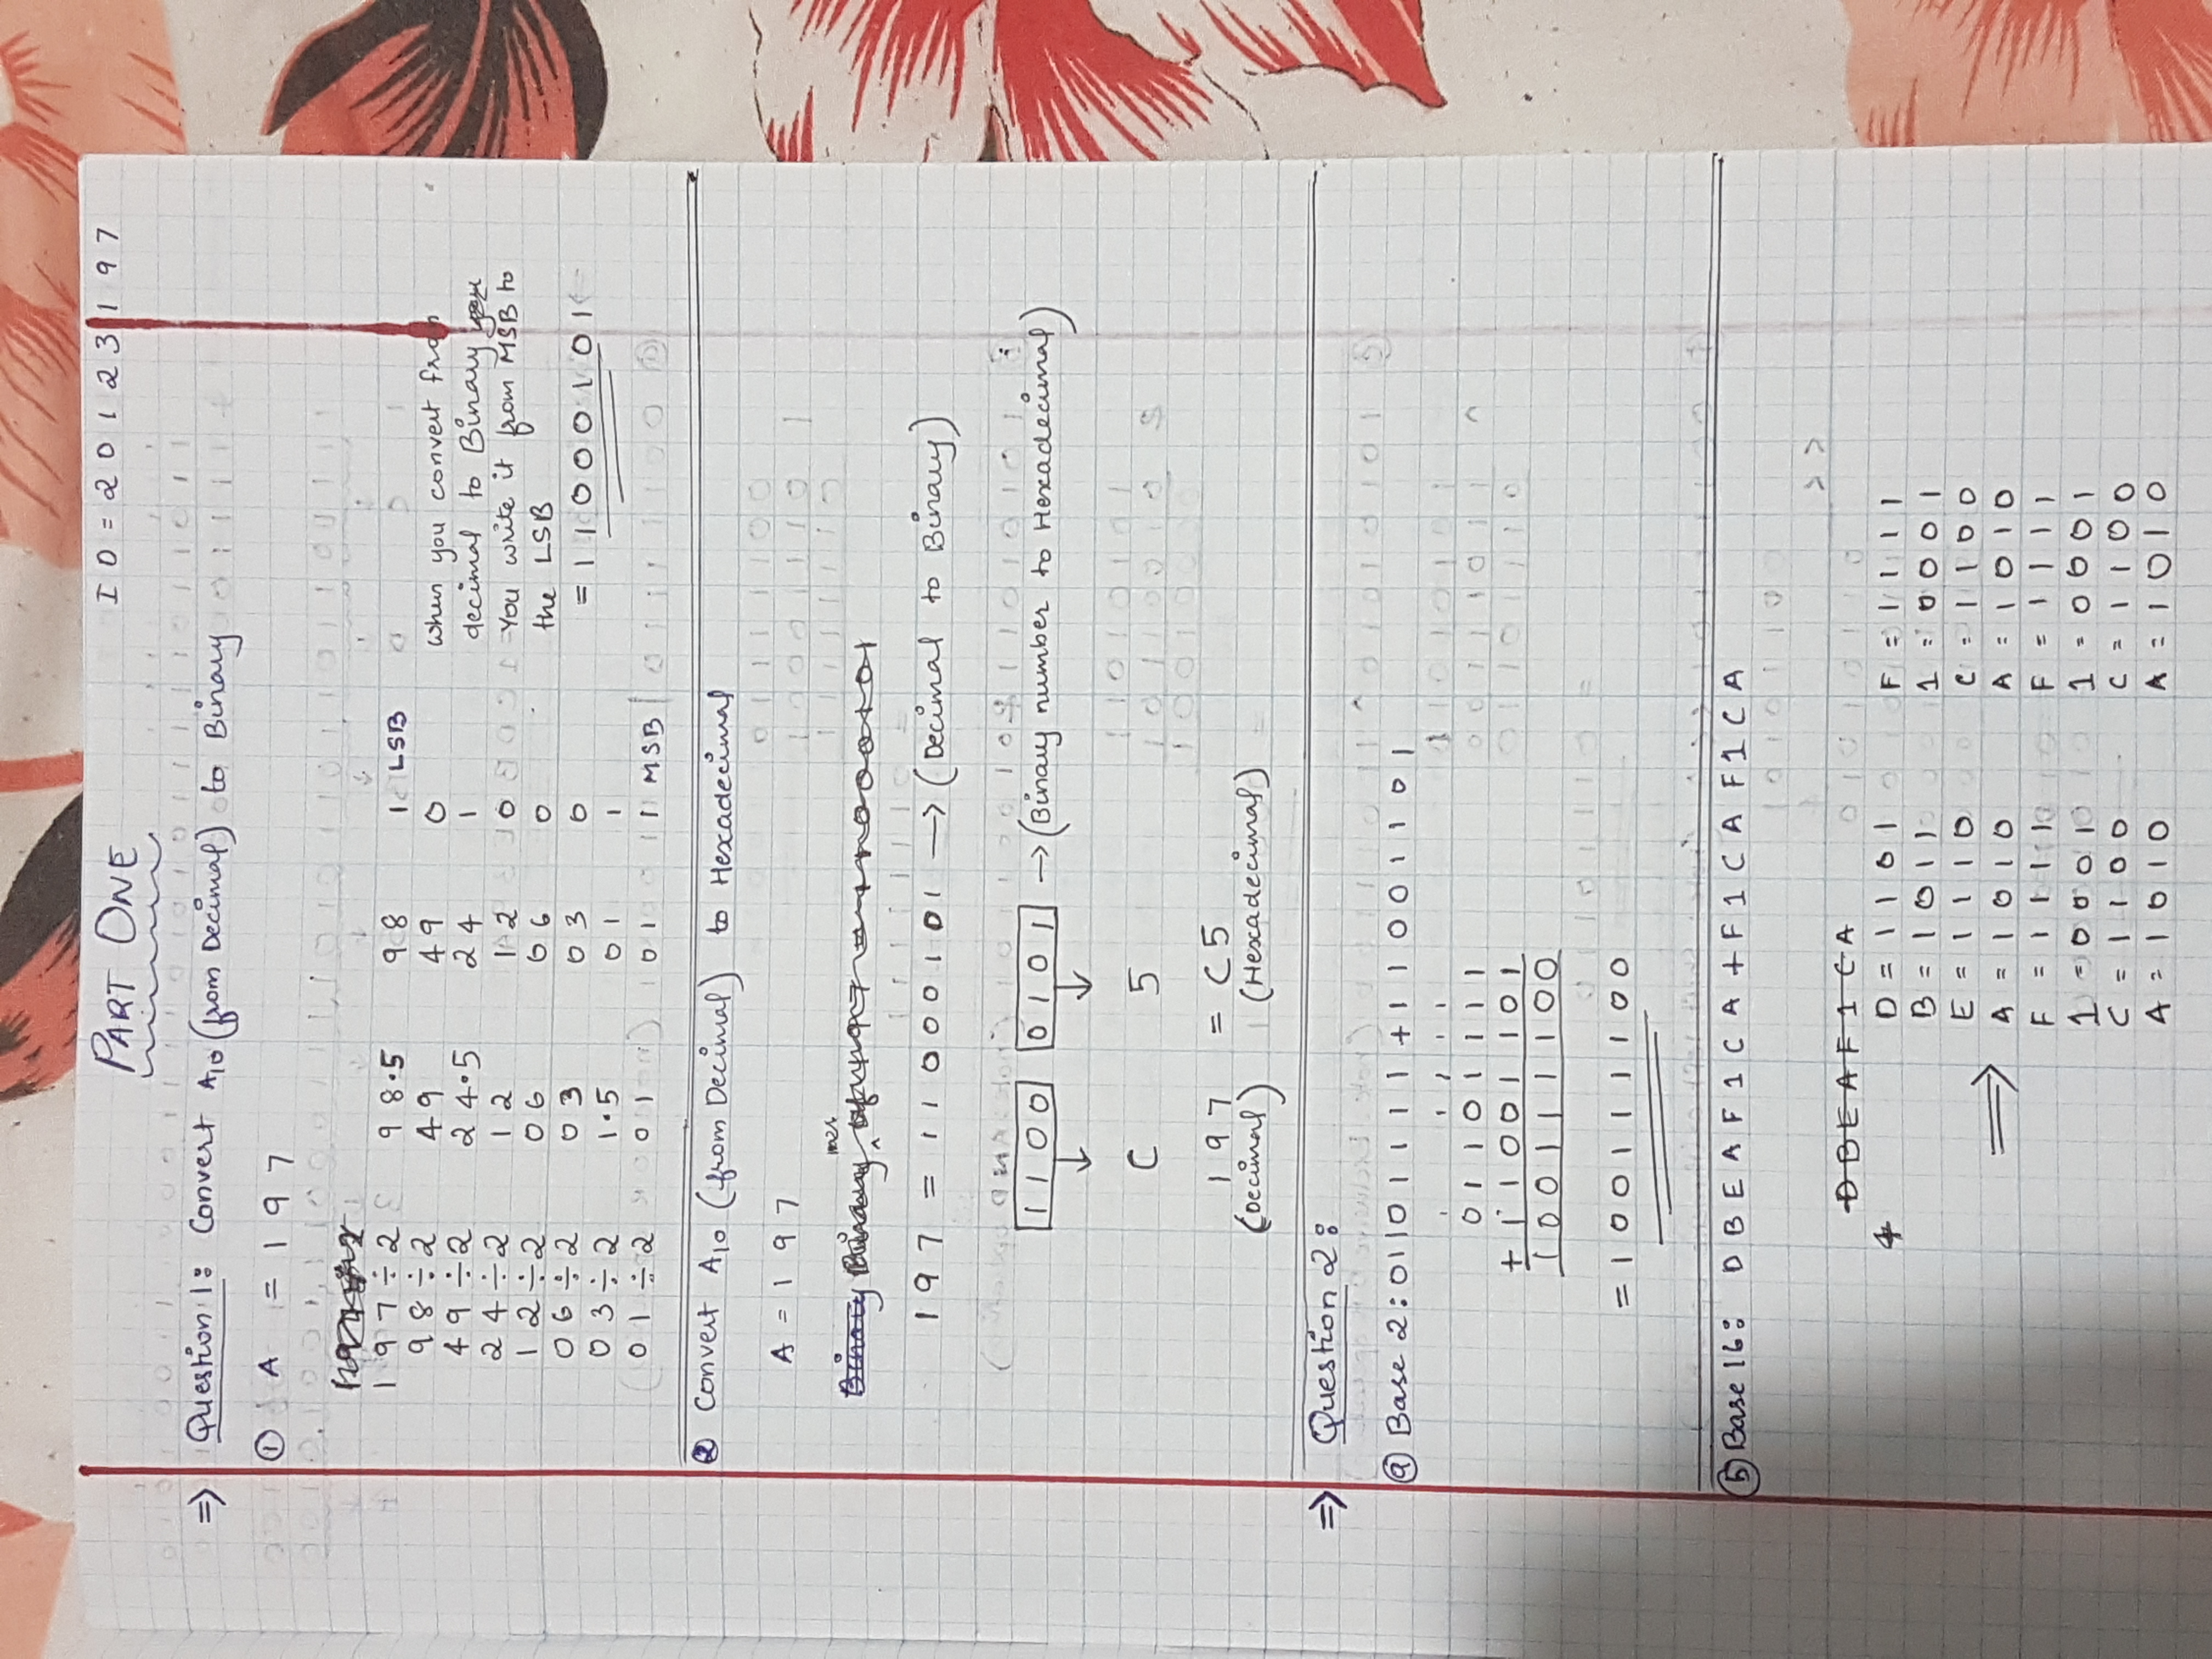 PART ONE
ID = 20123197
⇒ Question 1: Convert A₁₀ (from Decimal) to Binary
① A = 197
197 ÷ 2 98.5 98 1 LSB
98 ÷ 2 49 49 0
49 ÷ 2 24.5 24 1
24 ÷ 2 12 12 0
12 ÷ 2 06 06 0
06 ÷ 2 03 03 0
03 ÷ 2 1.5 01 1
01 ÷ 2 01 01 1 MSB
When you convert from
decimal to Binary
You write it from MSB to
the LSB
= 11000101
② Convert A₁₀ (from Decimal) to Hexadecimal
A = 197
Binary Binary of 197 = 11000101
197 = 11000101 → (Decimal to Binary)
1100 0101 → (Binary number to Hexadecimal)
↓ ↓
C 5
197 = C5
(Decimal) (Hexadecimal)
⇒ Question 2:
ⓐ Base 2: 01101111 + 11001101
1 1 1 1 1
01101111
+ 11001101
100111100
= 100111100
ⓑ Base 16: DBEAF1CA + F1CAF1CA
DBEAF1CA
+
D = 1101 F = 1111
B = 1011 1 = 0001
E = 1110 C = 1100
⇒ A = 1010 A = 1010
F = 1111 F = 1111
1 = 0001 1 = 0001
C = 1100 C = 1100
A = 1010 A = 1010